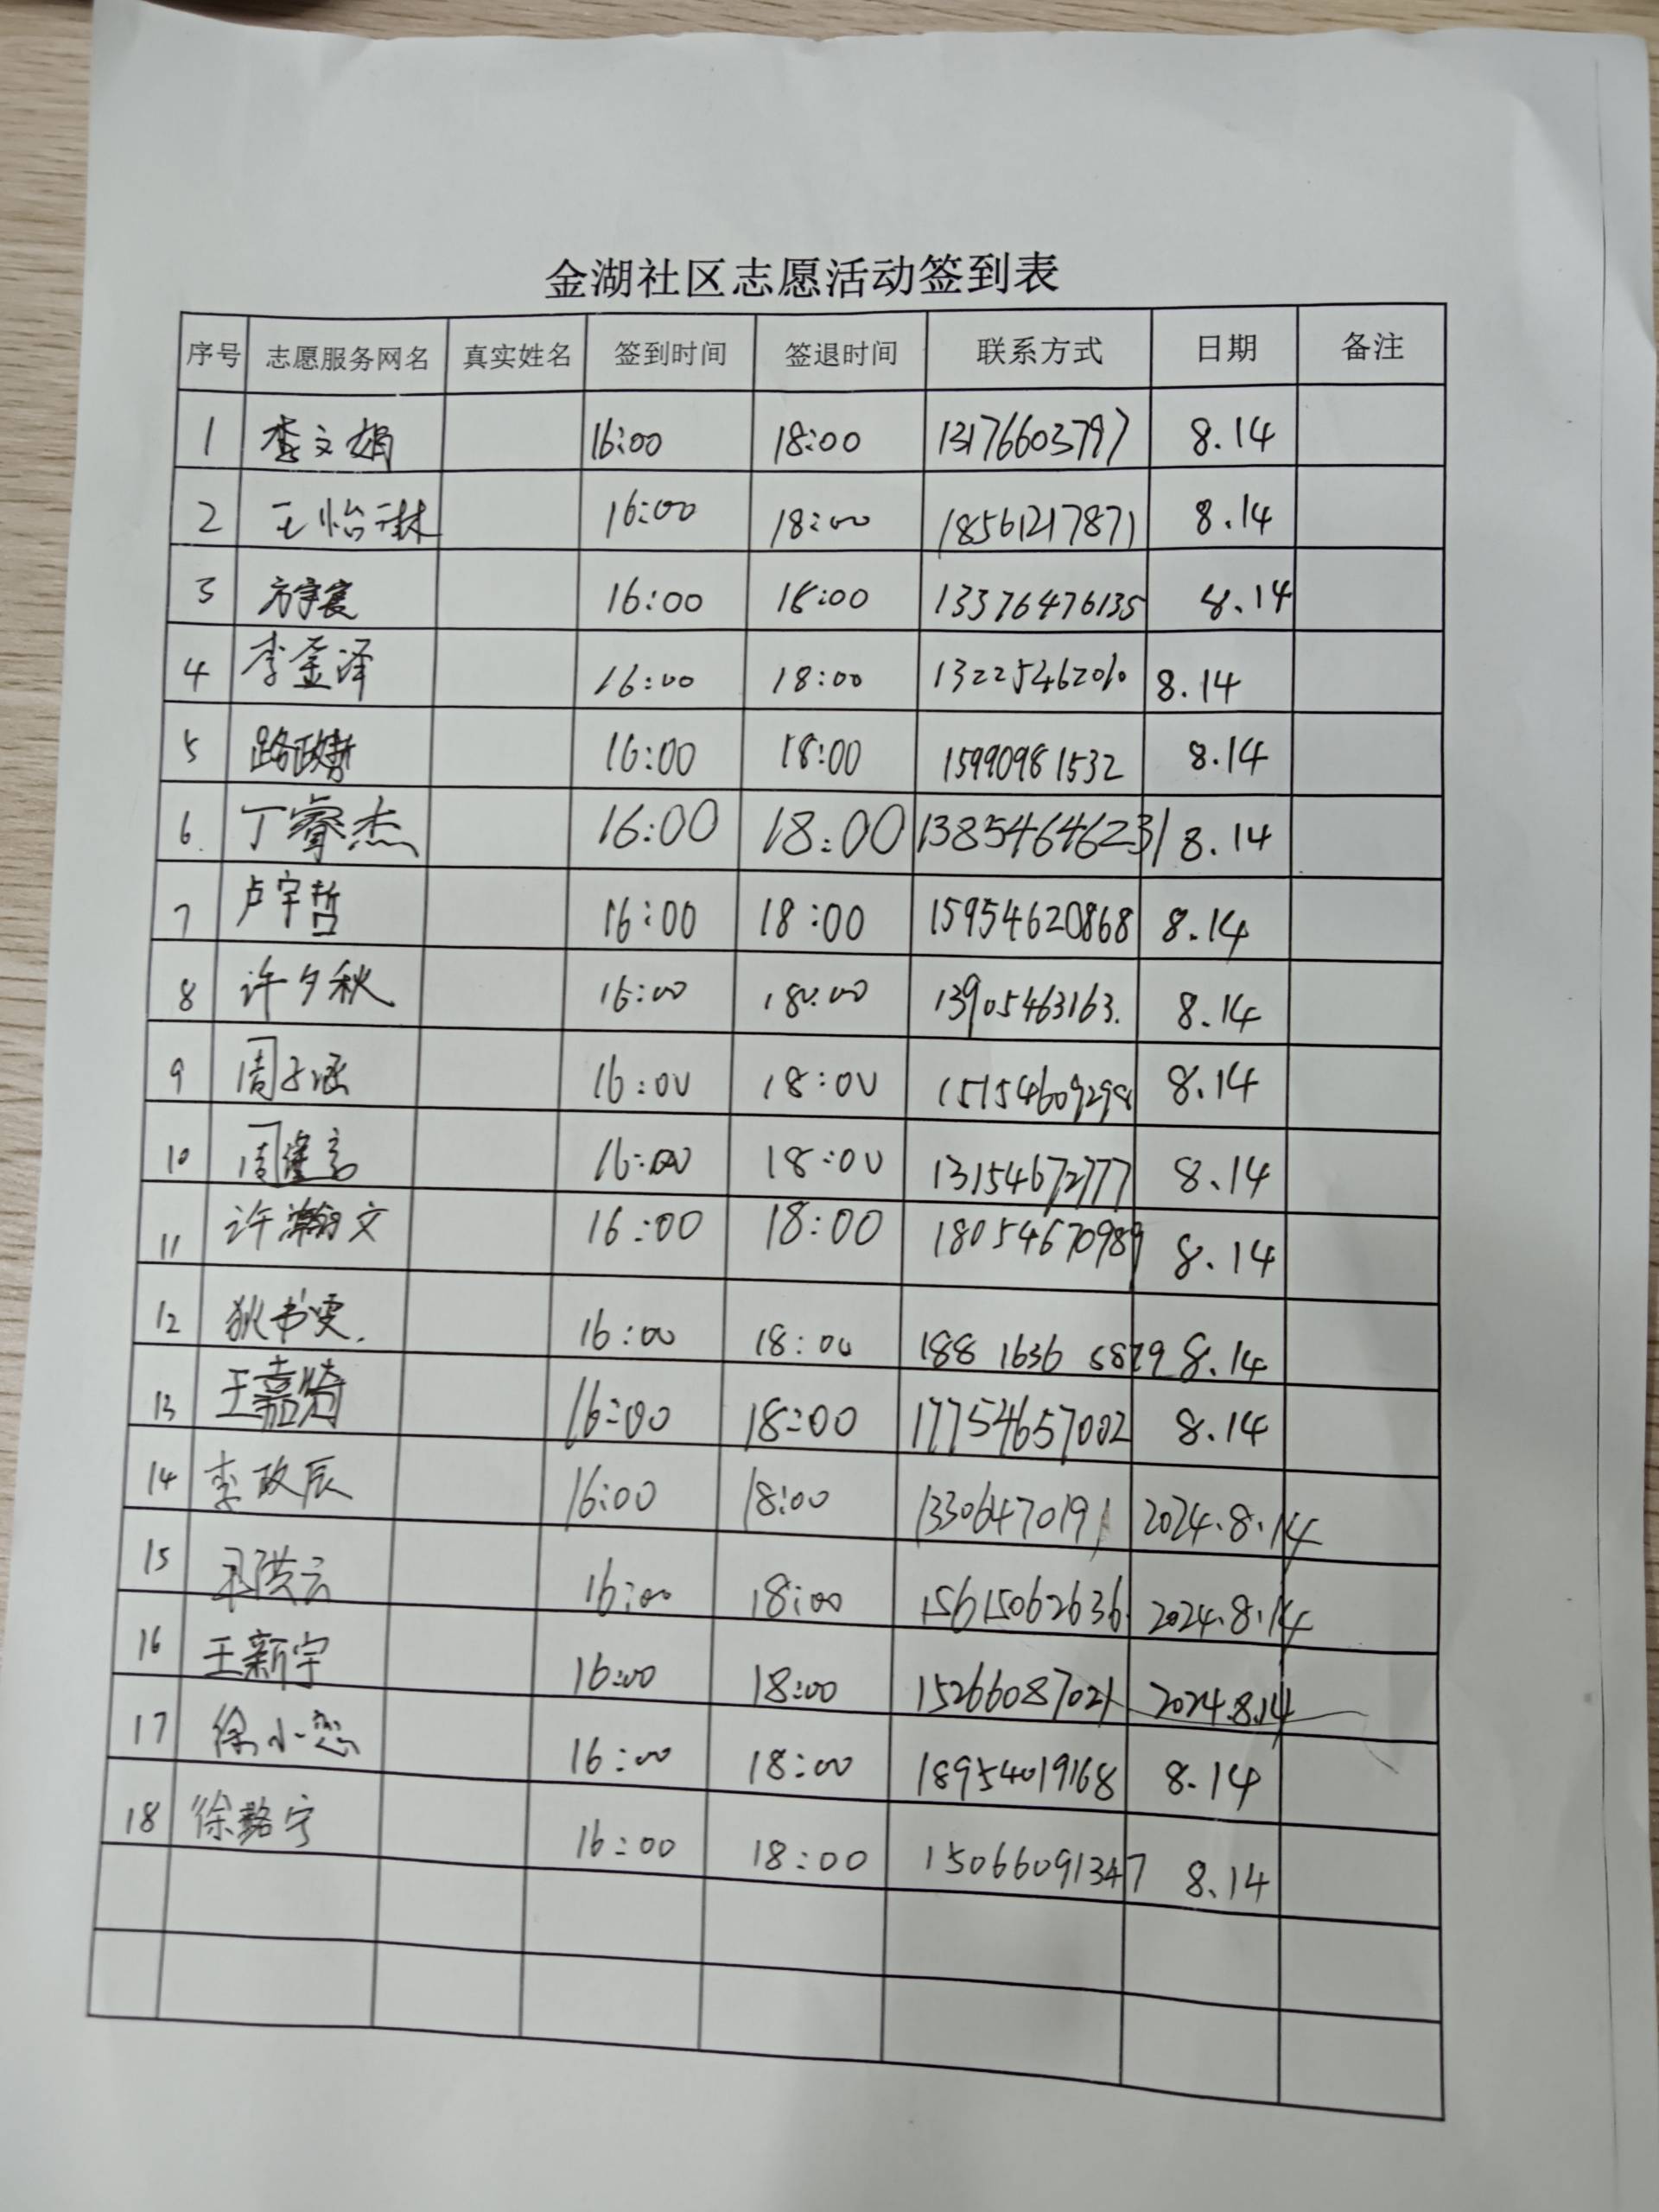 金湖社区志愿活动签到表
序号 志愿服务网名 真实姓名 签到时间 签退时间 联系方式 日期 备注
1 李文娟 16:00 18:00 13176603797 8.14
2 王怡琳 16:00 18:00 18561217871 8.14
3 16:00 18:00 13376476135 8.14
4 李金泽 16:00 18:00 8.14
5 16:00 18:00 15990981532 8.14
6. 丁睿杰 16:00 18:00 13854646231 8.14
7 卢宇哲 16:00 18:00 15954620868 8.14
8 许夕秋 16:00 18:00 13905463163. 8.14
9 周子涵 16:00 18:00 15154609298 8.14
10 16:00 18:00 13154672777 8.14
11 许瀚文 16:00 18:00 18054670989 8.14
12 狄书雯. 16:00 18:00 188 1636 5829 8.14
13 王嘉琦 16:00 18:00 17754657002 8.14
14 李政辰 16:00 18:00 13306470191 2024.8.14
15 16:00 18:00 15615062636 2024.8.14
16 王新宇 16:00 18:00 15266087021 2024.8.14
17 徐小 16:00 18:00 18954019168 8.14
18 徐 宁 16:00 18:00 15066091347 8.14